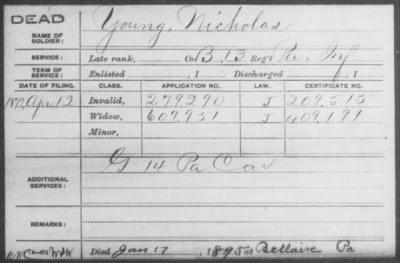 DEAD
NAME OF SOLDIER: Young, Nicholas
SERVICE: Late rank, Co. B, 13 Reg't Pa. Inf
TERM OF SERVICE: Enlisted , 1 Discharged , 1
DATE OF FILING. CLASS. APPLICATION NO. LAW. CERTIFICATE NO.
1879 Apr. 12 Invalid, 279290 J 209.515
Widow, 607.951 J 409,191
Minor,
ADDITIONAL SERVICES: G 14 Pa Cav
REMARKS:
Died Jan 17, 1895, at Bellaire Pa